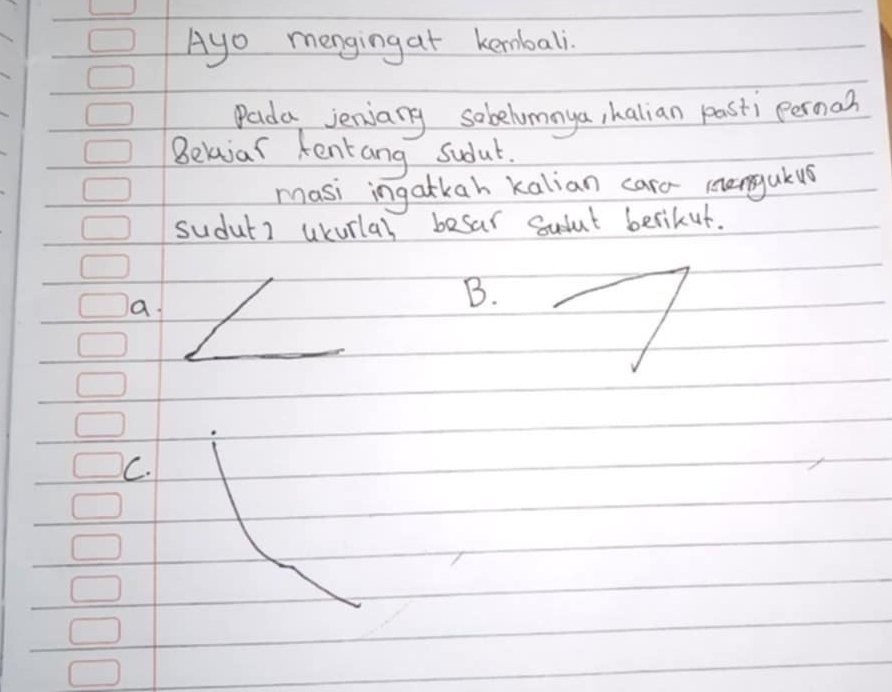 Ayo mengingat kembali.
Pada jenjang sebelumnya, kalian pasti pernah
Belajar tentang sudut.
masi ingatkah kalian cara mengukur
sudut? ukurlah besar sudut berikut.
a. B.
C.